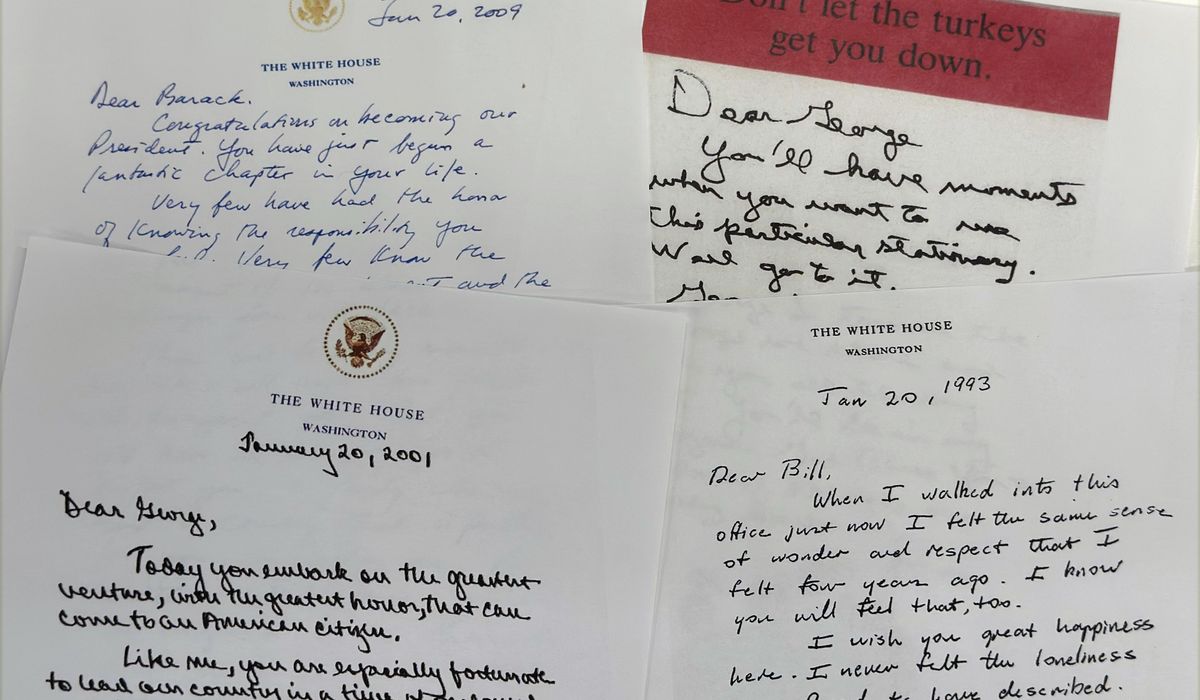 Jan 20, 2009
THE WHITE HOUSE
WASHINGTON
Dear Barack.
Congratulations on becoming our
President. You have just begun a
fantastic chapter in your life.
Very few have had the honor
of knowing the responsibility you
Very few know the
and the
Don't let the turkeys
get you down.
Dear George
You'll have moments
when you want to use
this particular stationary.
Well go to it.
THE WHITE HOUSE
WASHINGTON
January 20, 2001
Dear George,
Today you embark on the greatest
venture, with the greatest honor, that can
come to an American citizen.
Like me, you are especially fortunate
to lead our country in a time of
THE WHITE HOUSE
WASHINGTON
Jan 20, 1993
Dear Bill,
When I walked into this
office just now I felt the same sense
of wonder and respect that I
felt four years ago. I know
you will feel that, too.
I wish you great happiness
here. I never felt the loneliness
have described.